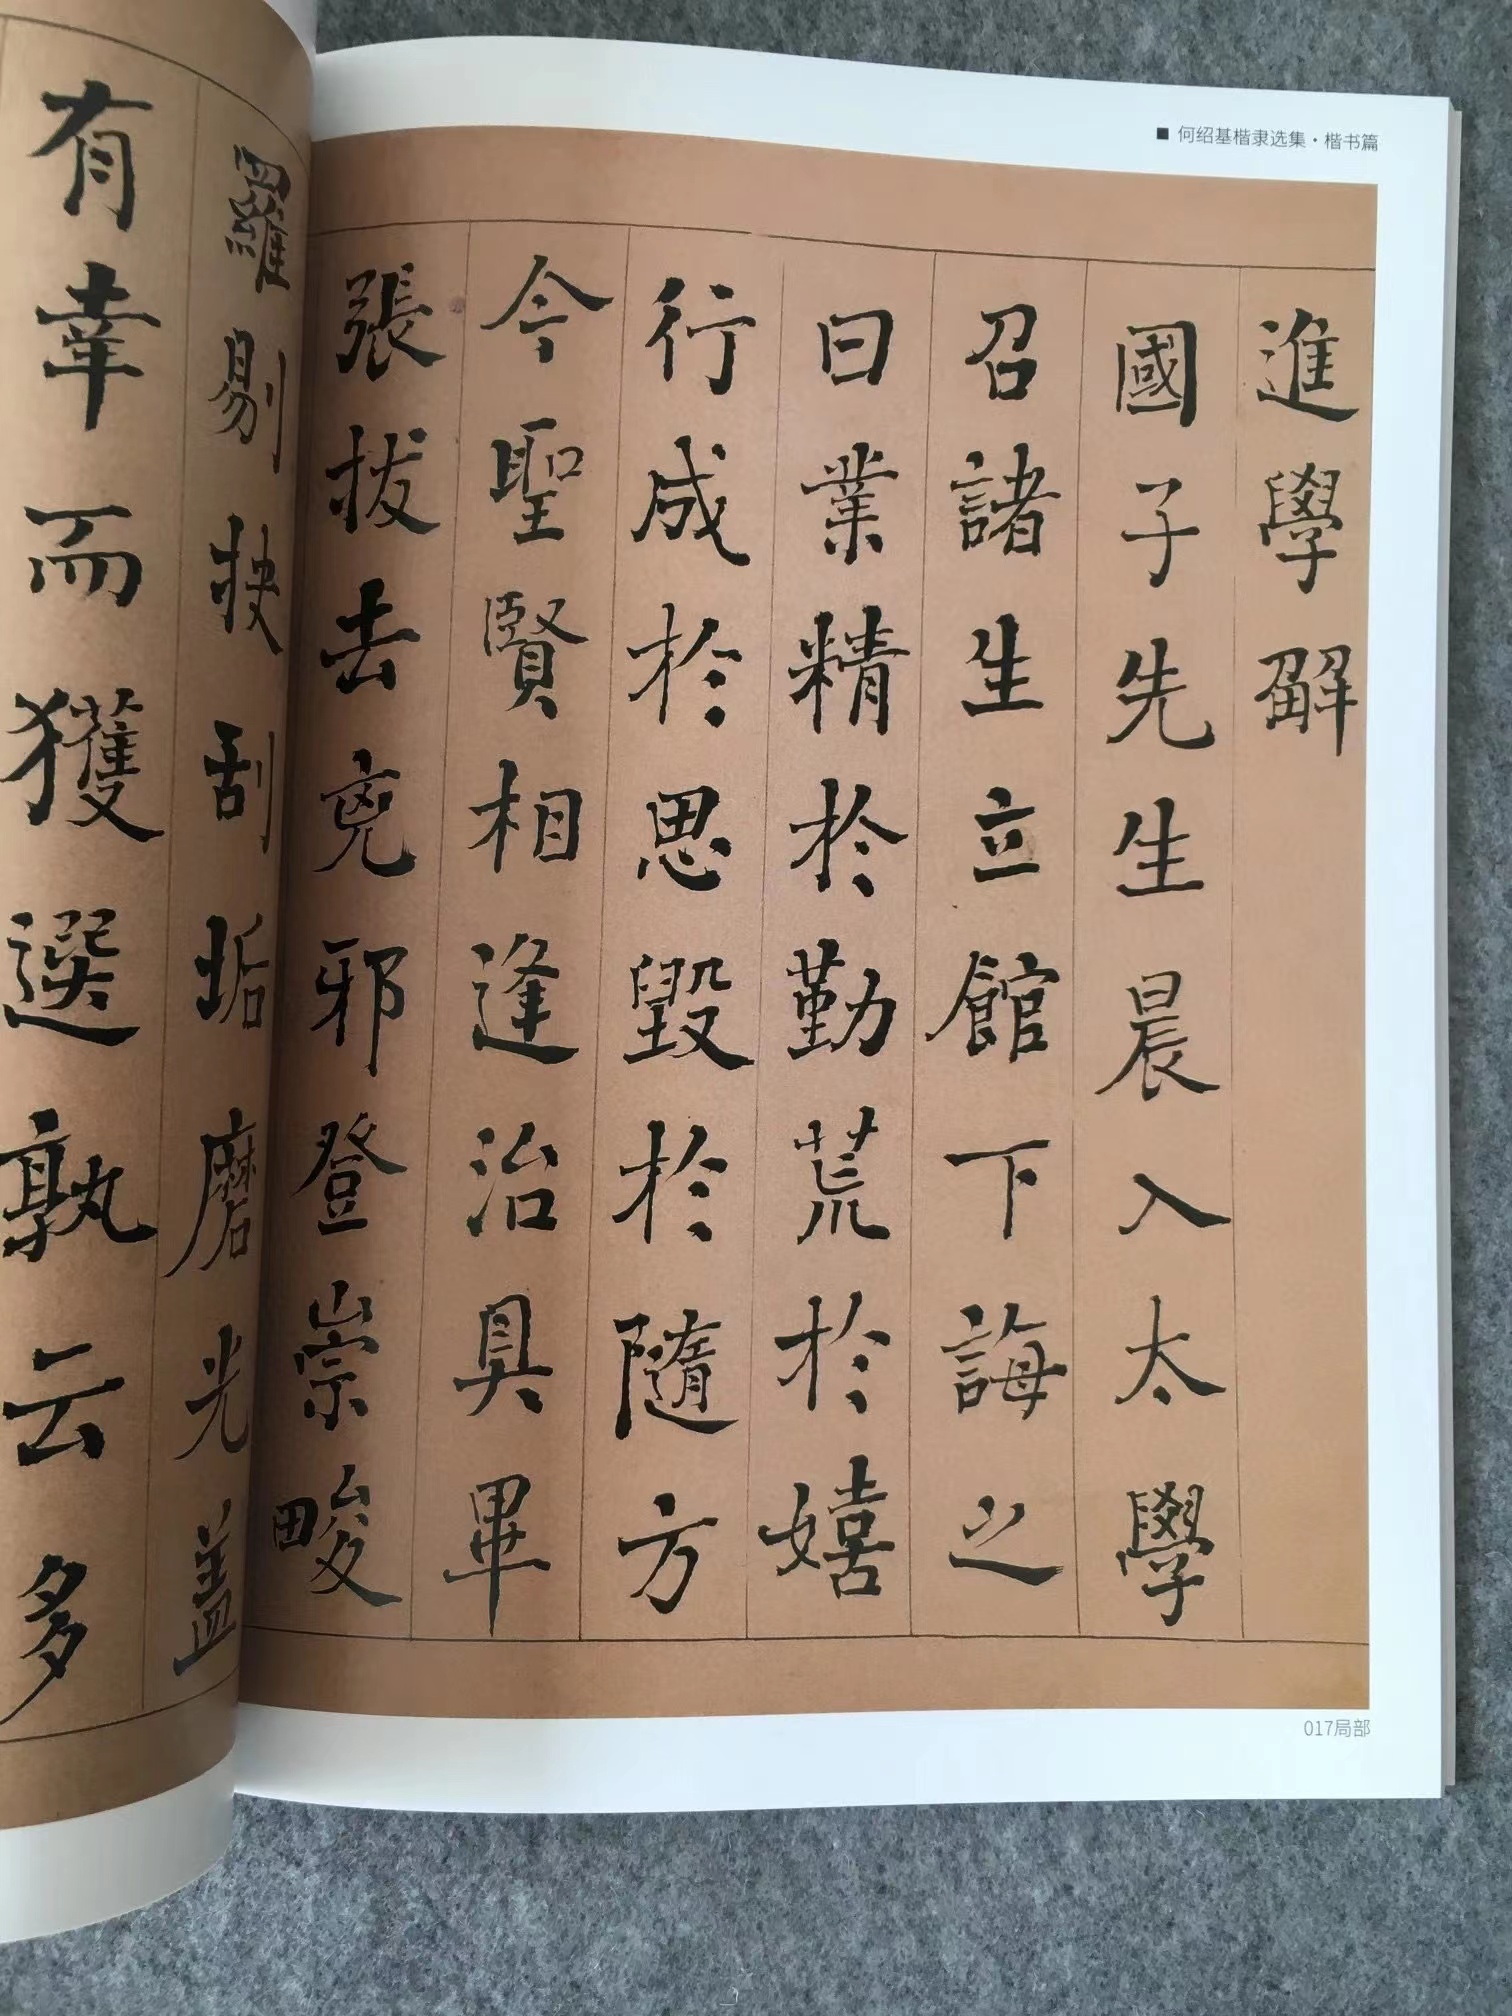 ■ 何绍基楷隶选集·楷书篇
進學解
國子先生晨入太學
召諸生立館下誨之
曰業精於勤荒於嬉
行成於思毀於隨方
今聖賢相逢治具畢
張拔去兇邪登崇畯
羅剔抉刮垢磨光蓋
有幸而獲選孰云多
017局部